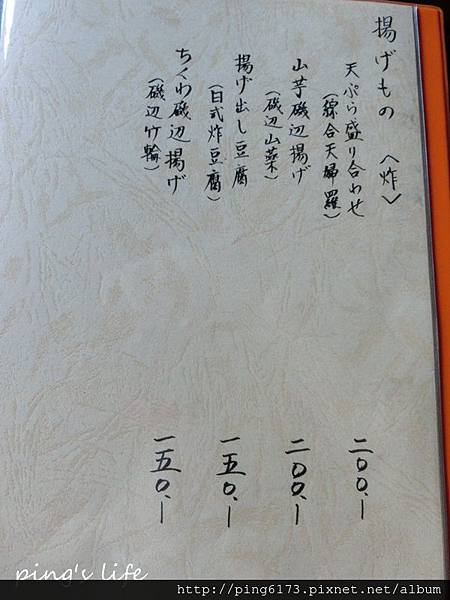 揚げもの 〈炸〉
天ぷら盛り合わせ
(綜合天婦羅)
二〇〇.-
山芋磯辺揚げ
(磯辺山藥)
二〇〇.-
揚げ出し豆腐
(日式炸豆腐)
一五〇.-
ちくわ磯辺揚げ
(磯辺竹輪)
一五〇.-
ping's life
http://ping6173.pixnet.net/album